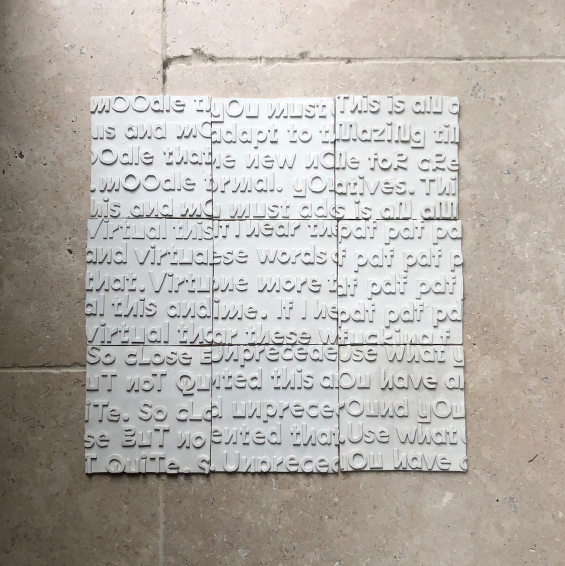 mOOdle th
us and mO
oOdle that
.mOOdle
his and mO
yOu must
adapt to t
he new nO
ormal. yO
u must ada
This is all a
mazing ti
le foR cRe
atives. Thi
s is all all
Virtual this
and virtua
that. Virtu
al this and
virtual tha
If I hear th
ese words
one more t
ime. If I he
ar these w
pdf pdf pd
f pdf pdf p
pdf pdf pd
f pdf pdf p
fucking f
So cLose B
uT noT Qu
iTe. So cLo
se BuT no
T QuiTe. S
Unprecede
nted this a
d unprece
ented that
. Unpreced
Use what y
Ou have ar
rOund yOu
.Use what
yOu have a